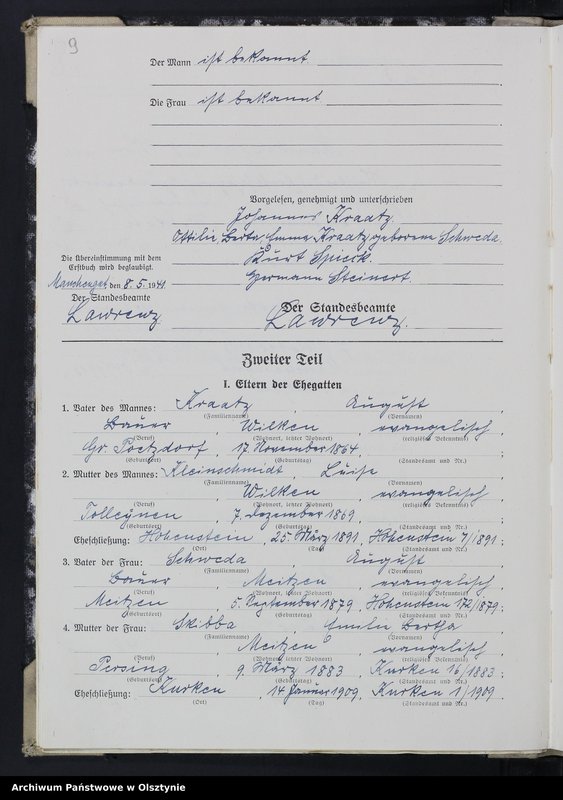 9
Der Mann ist bekannt
Die Frau ist bekannt
Vorgelesen, genehmigt und unterschrieben
Johannes Kraatz.
Ottilie Berta Emma Kraatz geborene Schweda.
Kurt Spieck.
Hermann Steinert.
Die Übereinstimmung mit dem
Erstbuch wird beglaubigt.
Manchengut den 8. 5. 1941
Der Standesbeamte
Lawrenz
Der Standesbeamte
Lawrenz.
Zweiter Teil
I. Eltern der Ehegatten
1. Vater des Mannes: Kraatz, August,
(Familienname) (Vornamen)
Bauer, Wilken, evangelisch,
(Beruf) (Wohnort, letzter Wohnort) (religiöses Bekenntnis)
Gr. Poetzdorf, 17. November 1864.
(Geburtsort) (Geburtstag) (Standesamt und Nr.)
2. Mutter des Mannes: Kleinschmidt, Luise,
(Familienname) (Vornamen)
Wilken, evangelisch,
(Beruf) (Wohnort, letzter Wohnort) (religiöses Bekenntnis)
Tolleynen, 7. Dezember 1869,
(Geburtsort) (Geburtstag) (Standesamt und Nr.)
Eheschließung: Hohenstein, 25. März 1891, Hohenstein 7/1891.
(Ort) (Tag) (Standesamt und Nr.)
3. Vater der Frau: Schweda, August,
(Familienname) (Vornamen)
Bauer, Meitzen, evangelisch,
(Beruf) (Wohnort, letzter Wohnort) (religiöses Bekenntnis)
Meitzen, 5. September 1879, Hohenstein 172/1879.
(Geburtsort) (Geburtstag) (Standesamt und Nr.)
4. Mutter der Frau: Skibba, Emilie Bertha,
(Familienname) (Vornamen)
Meitzen, evangelisch,
(Beruf) (Wohnort, letzter Wohnort) (religiöses Bekenntnis)
Persing, 9. März 1883, Kurken 16/1883.
(Geburtsort) (Geburtstag) (Standesamt und Nr.)
Eheschließung: Kurken, 14. Januar 1909, Kurken 1/1909.
(Ort) (Tag) (Standesamt und Nr.)
Archiwum Państwowe w Olsztynie